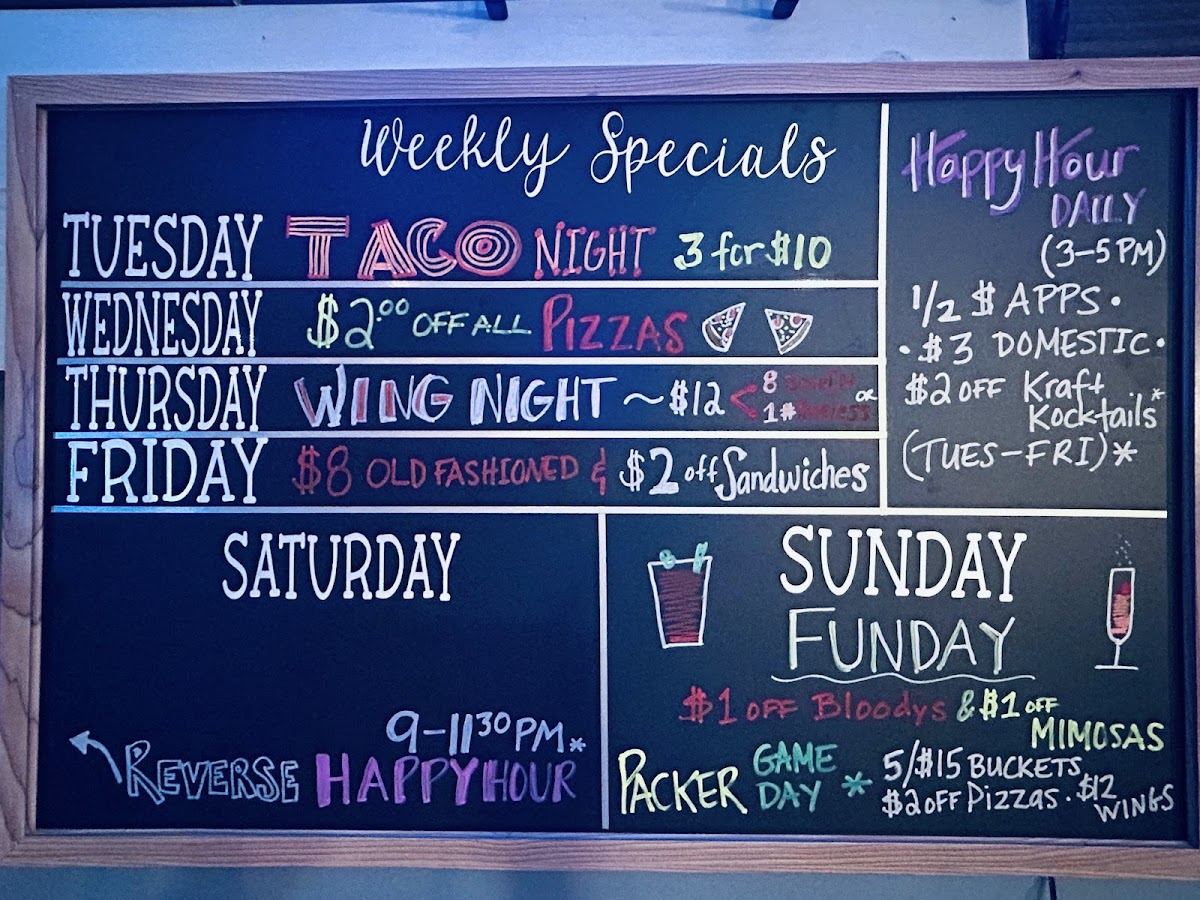 Weekly Specials
TUESDAY TACO NIGHT 3 for $10
WEDNESDAY $2.00 OFF ALL PIZZAS
THURSDAY WING NIGHT ~ $12 < 8 OR
1#
FRIDAY $8 OLD FASHIONED & $2 off Sandwiches
Happy Hour
DAILY
(3-5 PM)
1/2 $ APPS •
• $3 DOMESTIC •
$2 OFF Kraft
Kocktails*
(TUES-FRI)*
SATURDAY
9-1130 PM*
REVERSE HAPPY HOUR
SUNDAY
FUNDAY
$1 OFF Bloodys & $1 OFF
MIMOSAS
PACKER GAME
DAY *
5/$15 BUCKETS
$2 OFF Pizzas • $12
WINGS